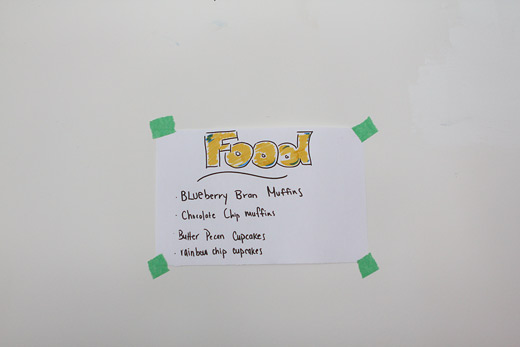 Food
· Blueberry Bran Muffins
· Chocolate Chip muffins
Butter Pecan Cupcakes
· rainbow chip cupcakes